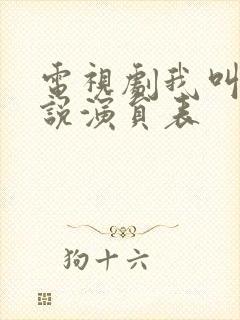 電視劇我叫
說演員表
狗十六